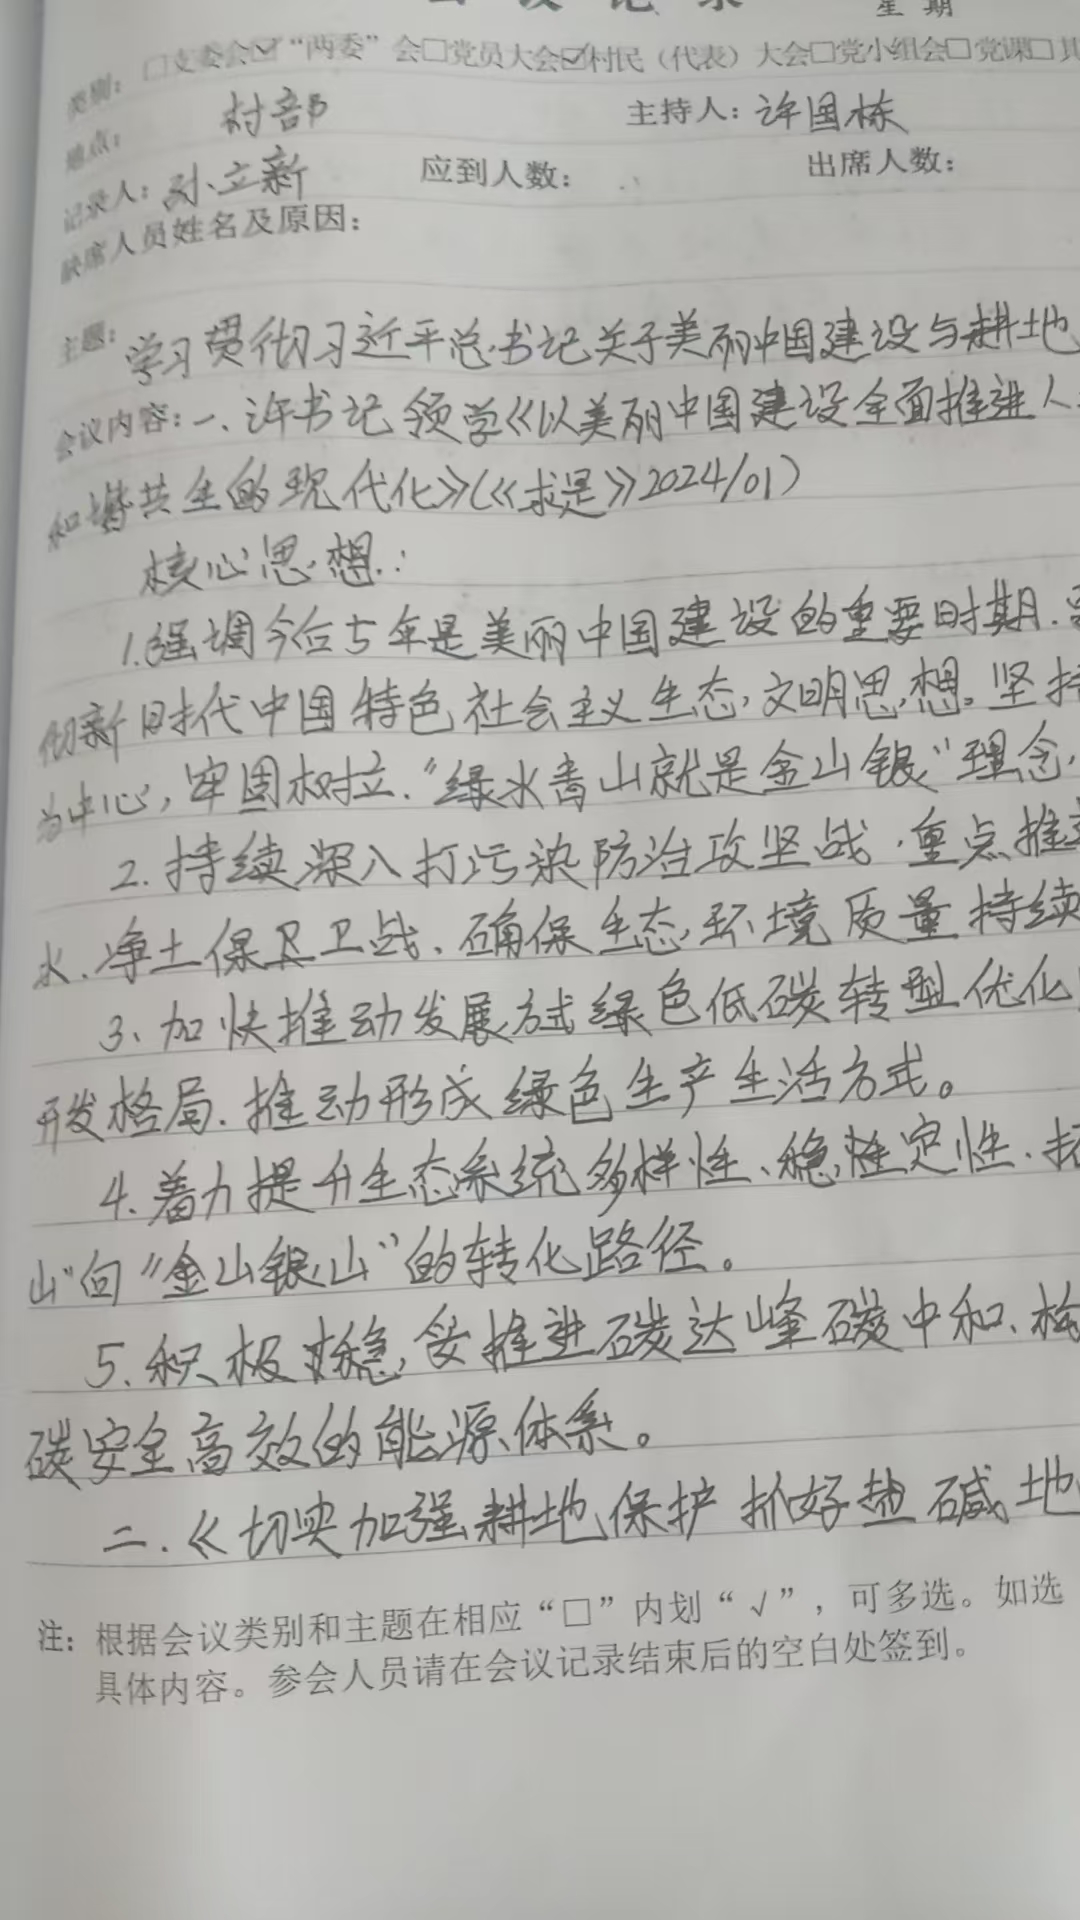 会议记录
星期
类别：□支委会☑“两委”会□党员大会☑村民（代表）大会□党小组会□党课□其
地点：村部 主持人：许国栋
记录人：孙立新 应到人数： 出席人数：
缺席人员姓名及原因：
主题：学习贯彻习近平总书记关于美丽中国建设与耕地
会议内容：一、许书记领学《以美丽中国建设全面推进人
和谐共生的现代化》(《求是》2024/01)
核心思想：
1.强调今后5年是美丽中国建设的重要时期.
彻新时代中国特色社会主义生态文明思想。坚持
为中心，牢固树立“绿水青山就是金山银”理念，
2.持续深入打污染防治攻坚战，重点推
水、净土保卫卫战、确保生态环境质量持续
3、加快推动发展方式绿色低碳转型优化
开发格局.推动形成绿色生产生活方式。
4.着力提升生态系统多样性、稳性定性、拓
山”向“金山银山”的转化路径。
5.积极稳妥推进碳达峰碳中和、构
碳安全高效的能源体系。
二.《切实加强耕地保护 抓好盐碱地
注：根据会议类别和主题在相应“□”内划“√”，可多选。如选
具体内容。参会人员请在会议记录结束后的空白处签到。